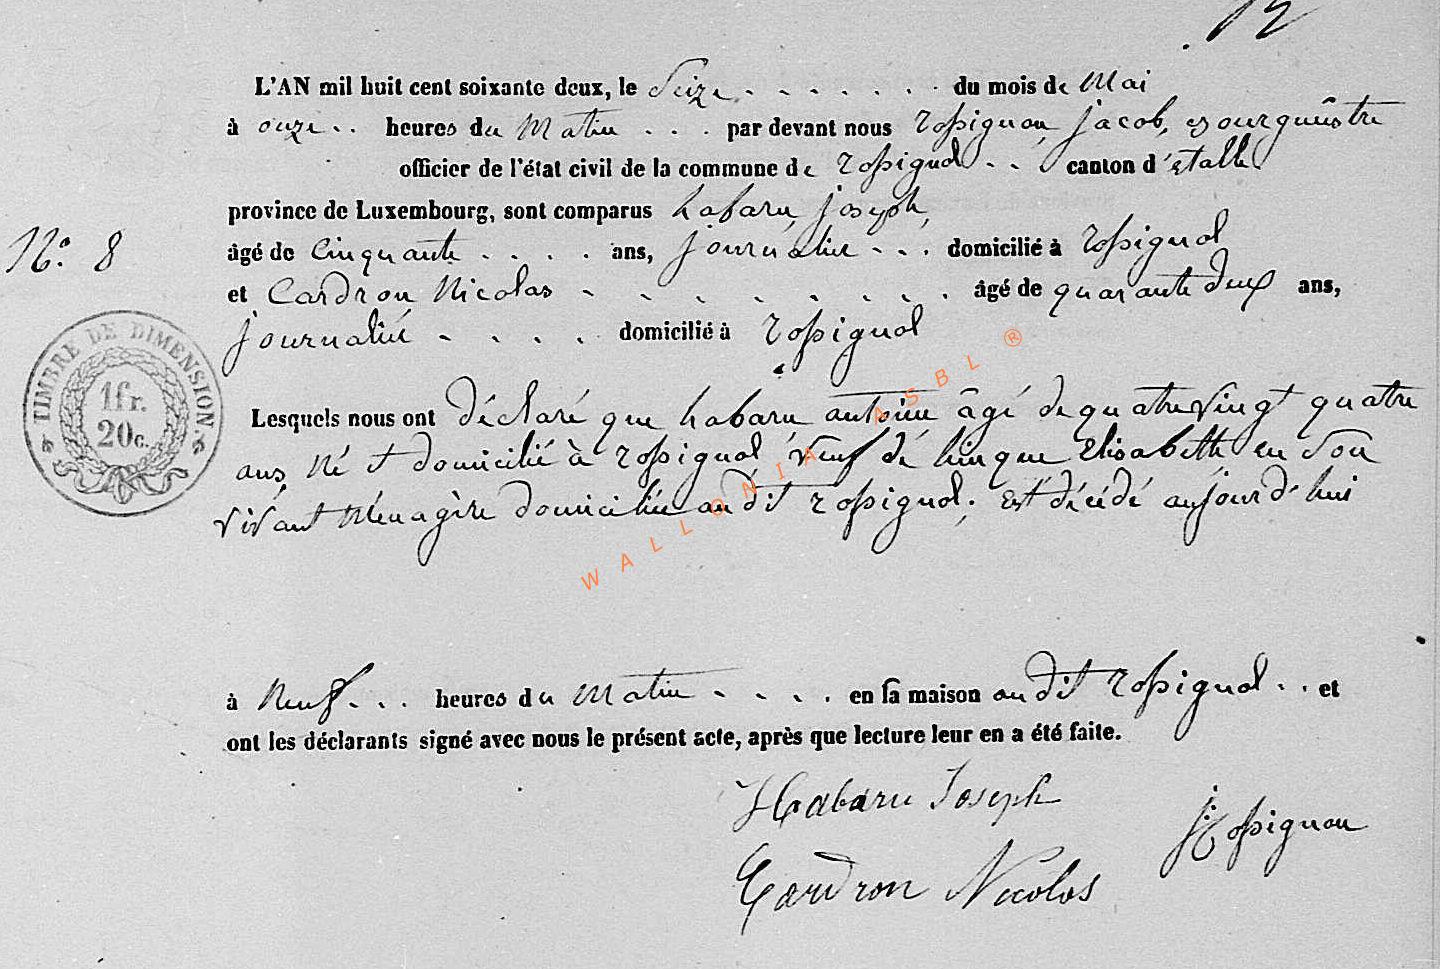 12
L'AN mil huit cent soixante deux, le Seize du mois de Mai
à onze heures du Matin par devant nous rossignon, jacob, bourgmestre
officier de l'état civil de la commune de rossignol canton d'étalle
province de Luxembourg, sont comparus habaru, joseph,
N.° 8
âgé de Cinquante ans, journalier domicilié à rossignol
et Cardron Nicolas âgé de quarante deux ans,
journalier domicilié à rossignol
TIMBRE DE DIMENSION
1fr.
20c.
Lesquels nous ont déclaré que habaru antoine âgé de quatre Vingt quatre
ans, Né et domicilié à rossignol, Veuf de Elisabeth en Son
vivant Ménagère domiciliée au dit rossignol, Est décédé aujourd'hui
WALLONIA ASBL ®
à Neuf heures du Matin en sa maison au dit rossignol et
ont les déclarants signé avec nous le présent acte, après que lecture leur en a été faite.
Habaru Joseph
J Rossignon
Cardron Nicolas